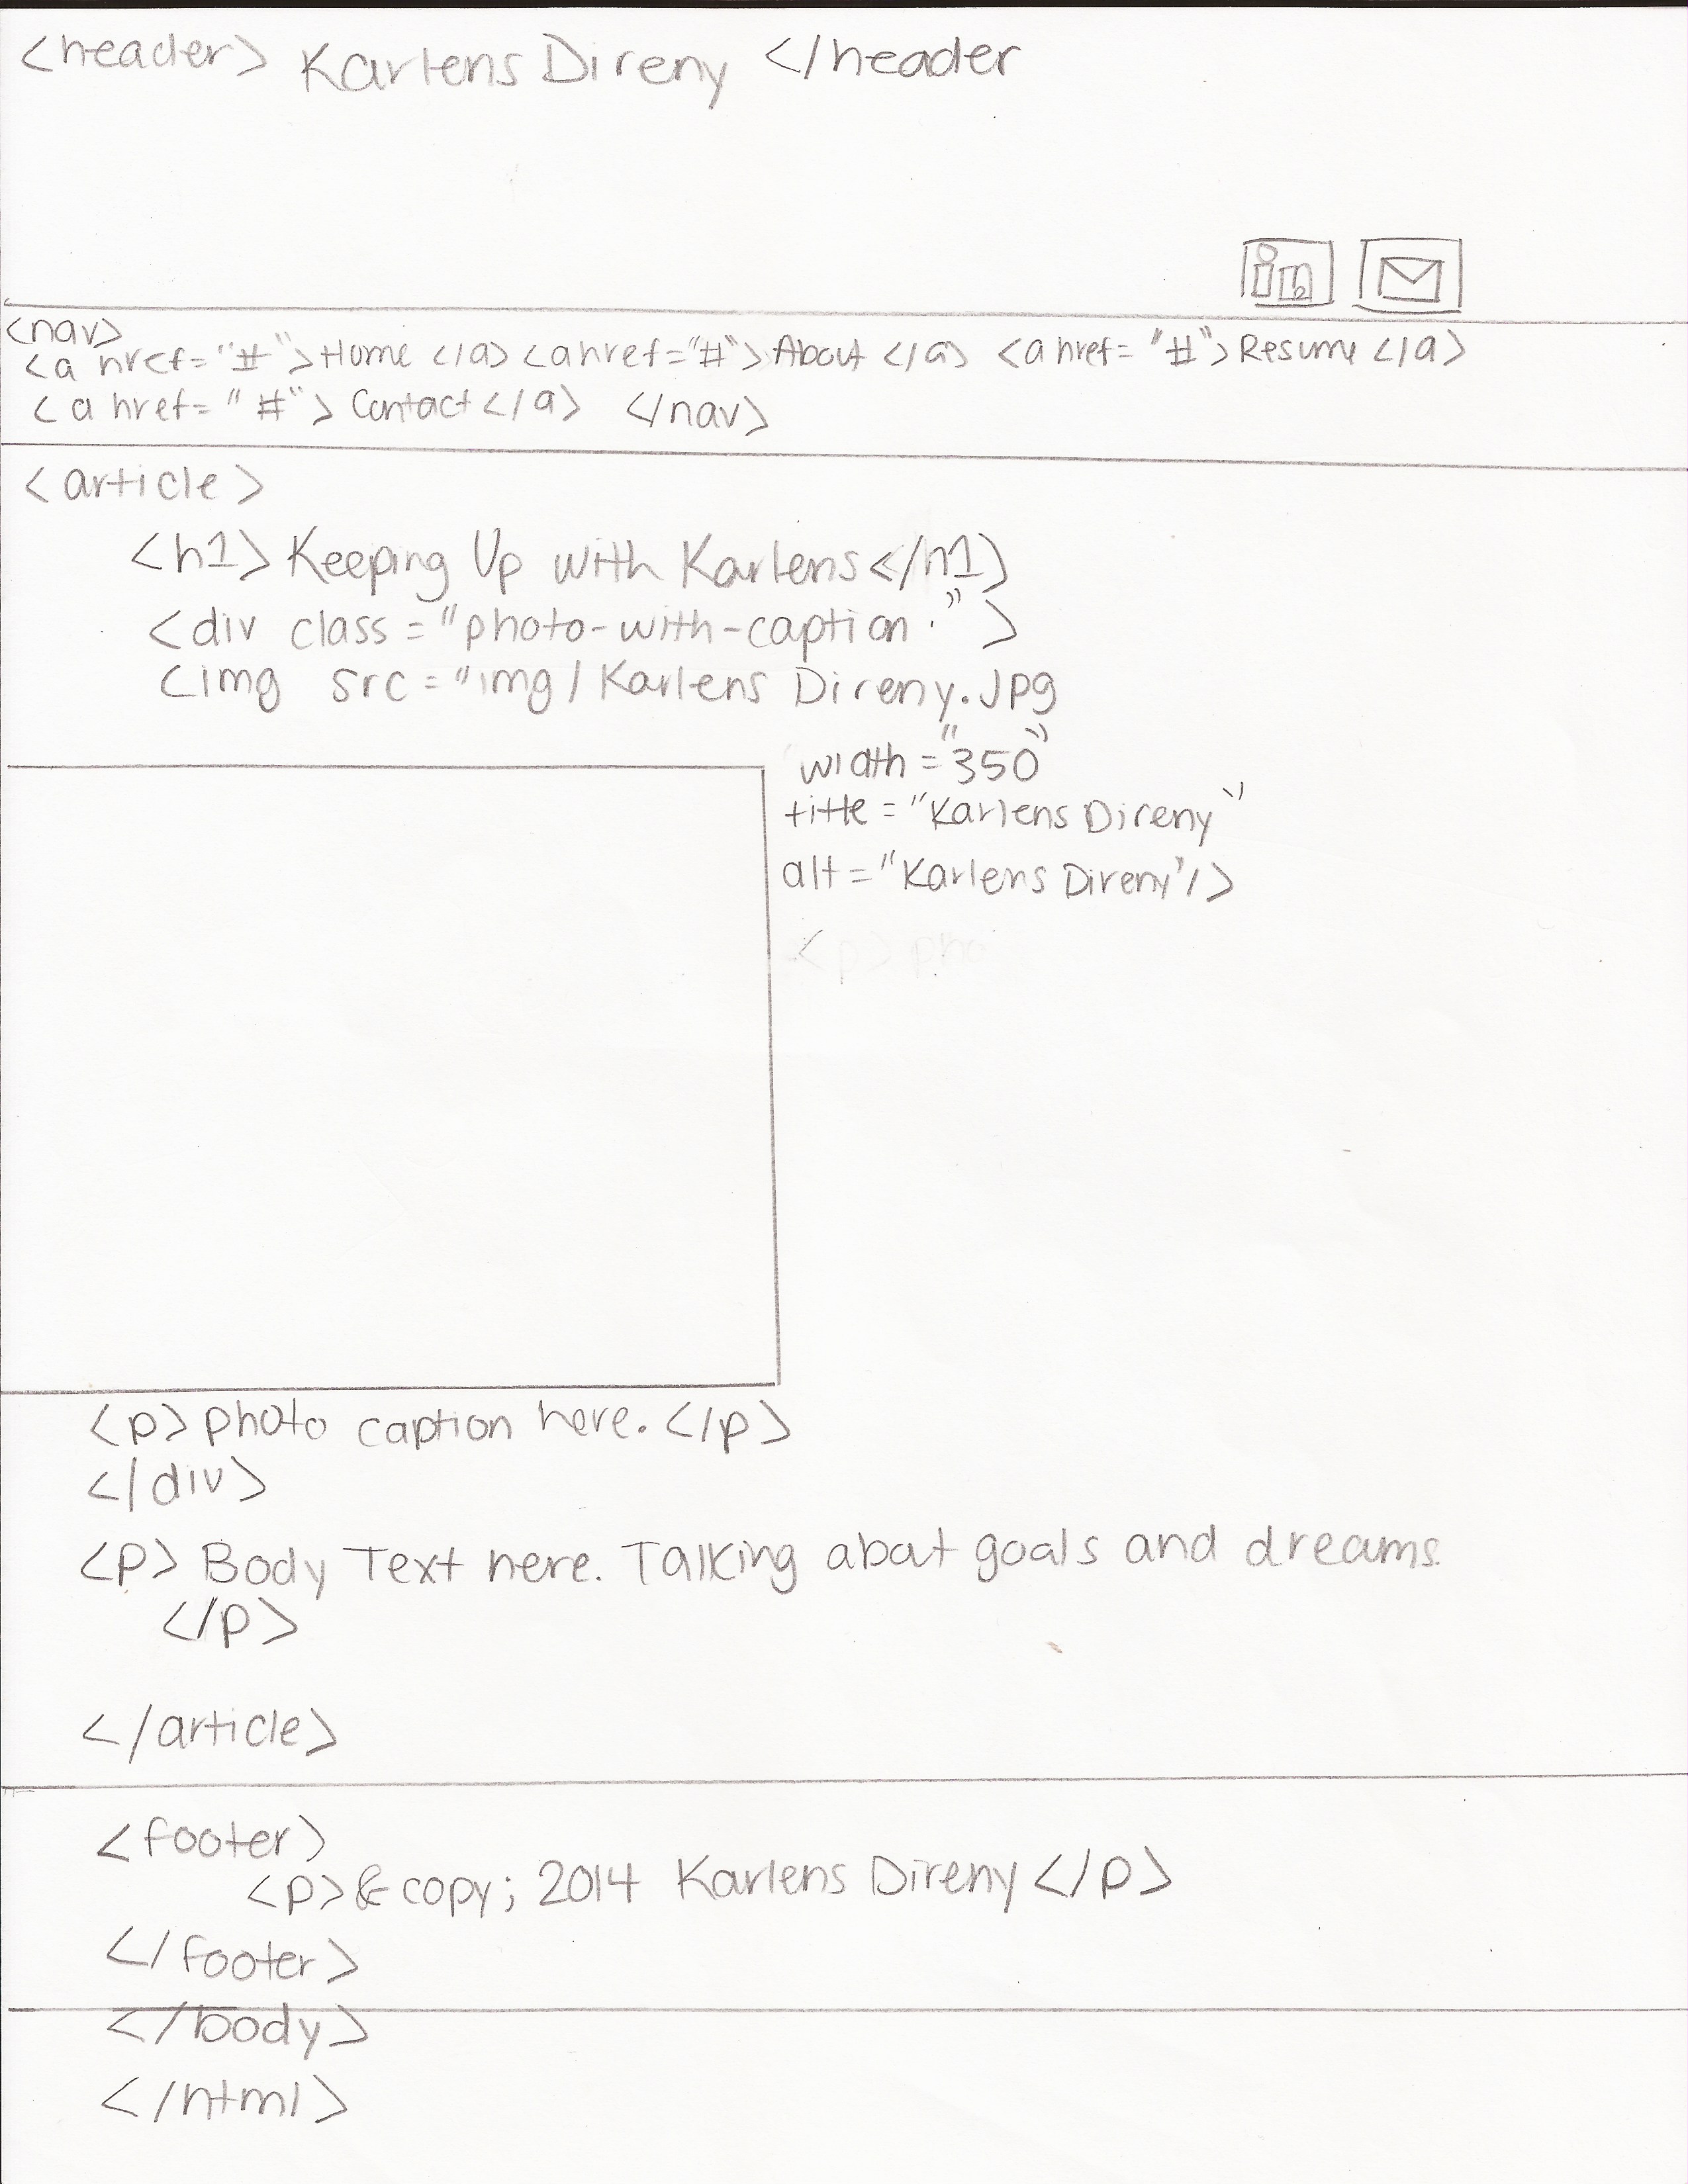 <header> Karlens Direny </header
in
<nav>
<a href="#">Home </a> <a href="#"> About </a> <a href="#">Resume </a>
<a href="#"> Contact </a> </nav>
<article>
<h1> Keeping Up with Karlens</h1>
<div class="photo-with-caption.">
<img src="img/Karlens Direny.jpg
width="350"
title="Karlens Direny"
alt="Karlens Direny"/>
<p> pho
<p> photo caption here. </p>
</div>
<p> Body Text here. Talking about goals and dreams.
</p>
</article>
<footer>
<p>&copy; 2014 Karlens Direny </p>
</footer>
</body>
</html>